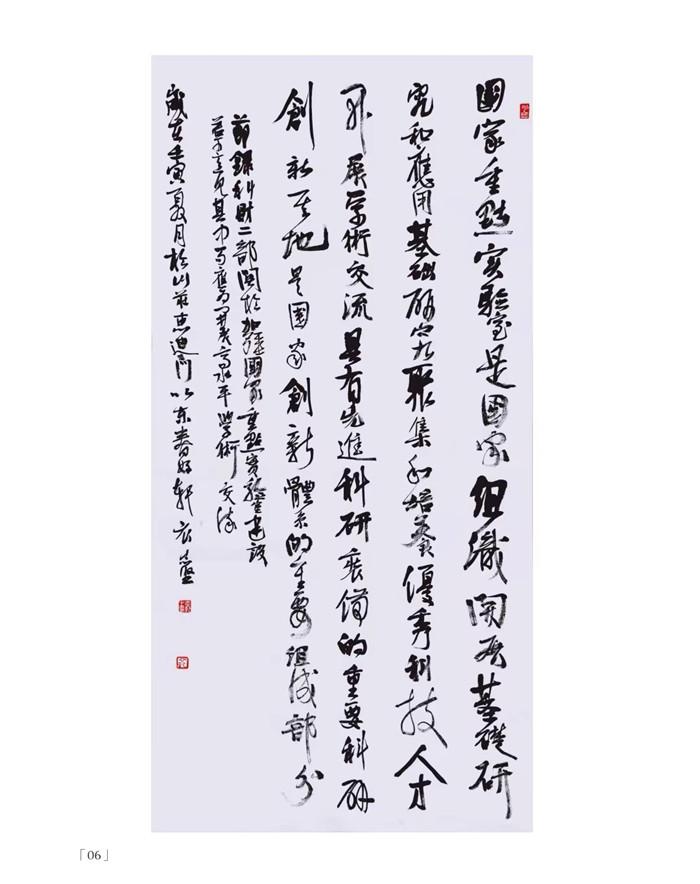 國家重點实驗室是國家组織開展基礎研
究和應用基础研究聚集和培養優秀科技人才
開展學術交流具有先進科研裝備的重要科研
創新基地是國家創新體系的重要組成部分
節錄科財二部關於加强國家重點實驗室建設
若干意見其中
開展高水平學術交流
歲在壬寅夏月於山
「06」